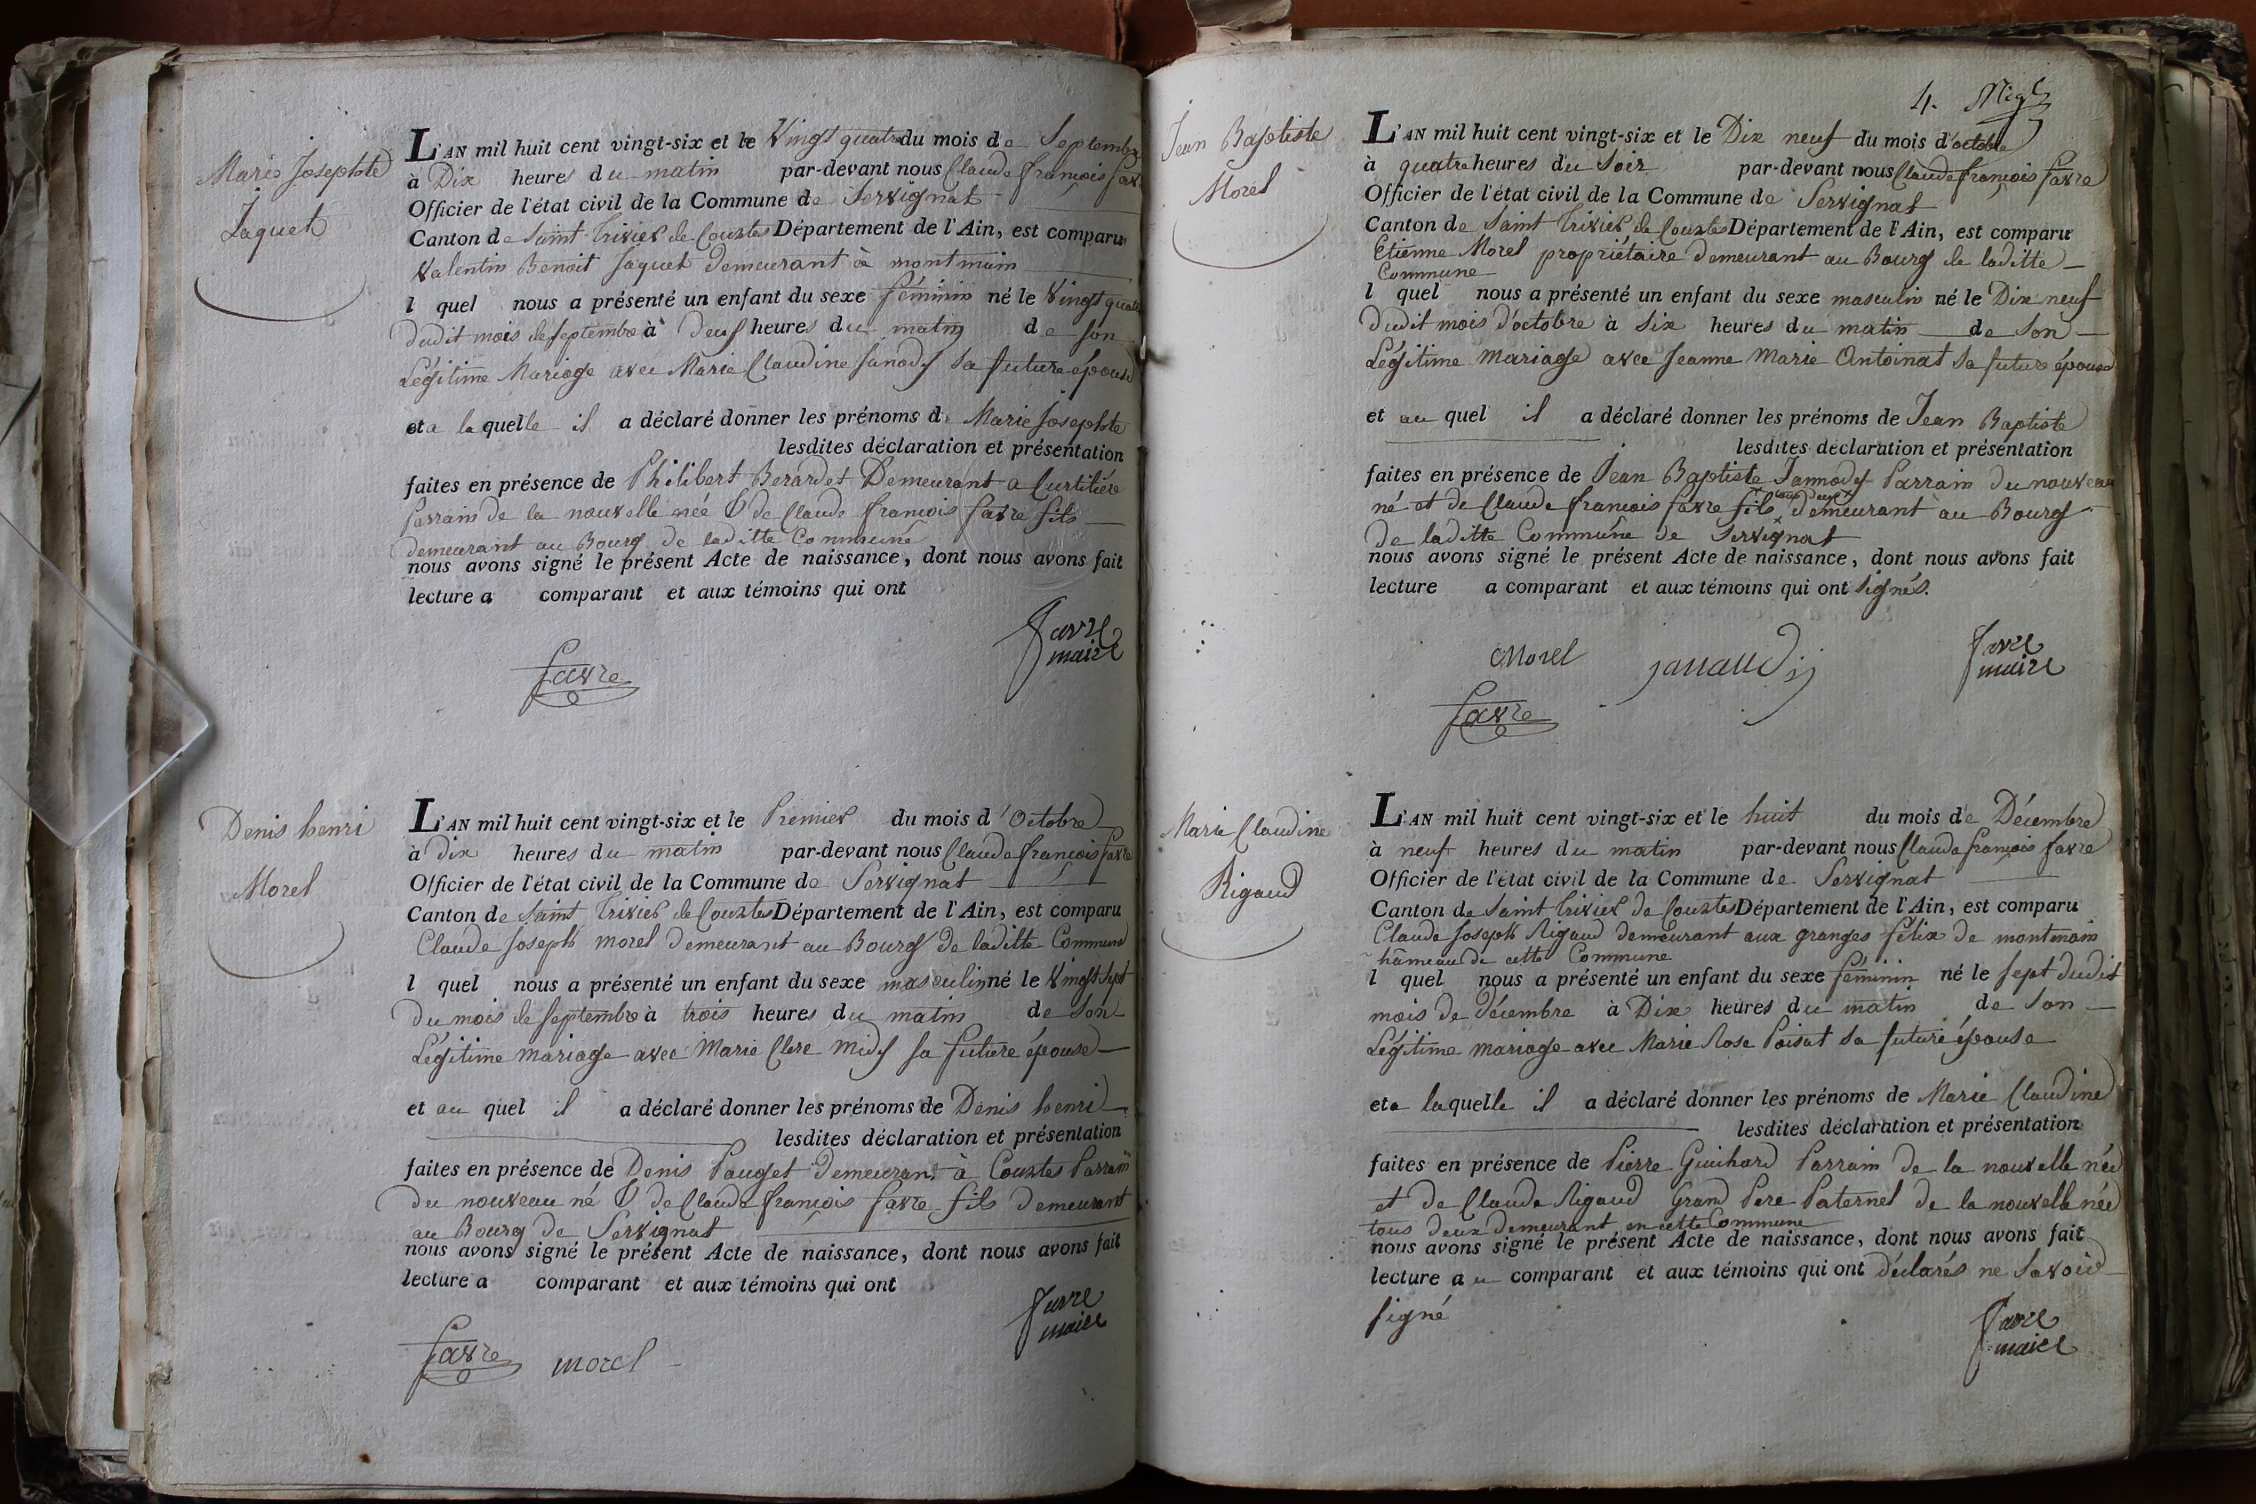 Marie Josephte
Jaquet
L'AN mil huit cent vingt-six et le Vingt quatre du mois de Septembre
à Dix heures du matin par-devant nous Claude françois fav
Officier de l'état civil de la Commune de Servignat
Canton de Saint Trivier de Courtes Département de l'Ain, est comparu
Valentin Benoit Jaquet demeurant à montmain
l quel nous a présenté un enfant du sexe féminin né le Vingt quatre
dudit mois de septembre à Deux heures du matin de son
Légitime Mariage avec Marie Claudine Janody sa future épouse
et a la quelle il a déclaré donner les prénoms d Marie Josephte
lesdites déclaration et présentation
faites en présence de Philibert Berardet Demeurant a Curtilière
Parrain de la nouvelle née & de Claude françois favre fils
demeurant au Bourg de laditte Commune
nous avons signé le présent Acte de naissance, dont nous avons fait
lecture a comparant et aux témoins qui ont
favre
maire
favre
Denis henri
Morel
L'AN mil huit cent vingt-six et le Premier du mois d'Octobre
à dix heures du matin par-devant nous Claude françois favre
Officier de l'état civil de la Commune de Servignat
Canton de Saint Trivier de Courtes Département de l'Ain, est comparu
Claude Joseph morel demeurant au Bourg de laditte Commune
l quel nous a présenté un enfant du sexe masculin né le Vingt Sept
du mois de septembre à trois heures du matin de son
Légitime mariage avec Marie Clere Midy sa future épouse
et au quel il a déclaré donner les prénoms de Denis henri
lesdites déclaration et présentation
faites en présence de Denis Pauget demeurant à Courtes Parrain
du nouveau né & de Claude françois favre fils demeurant
au Bourg de Servignat
nous avons signé le présent Acte de naissance, dont nous avons fait
lecture a comparant et aux témoins qui ont
favre
maire
favre morel
4.
Jean Baptiste
Morel
L'AN mil huit cent vingt-six et le Dix neuf du mois d'octobre
à quatre heures du Soir par-devant nous Claude françois favre
Officier de l'état civil de la Commune de Servignat
Canton de Saint Trivier de Courtes Département de l'Ain, est comparu
Etienne Morel propriétaire demeurant au Bourg de laditte
Commune
l quel nous a présenté un enfant du sexe masculin né le Dix neuf
dudit mois d'octobre à six heures du matin de son
Légitime mariage avec Jeanne Marie Antoinat sa future épouse
et au quel il a déclaré donner les prénoms de Jean Baptiste
lesdites déclaration et présentation
faites en présence de Jean Baptiste Jannody Parrain du nouveau
né et de Claude françois favre fils tous deux demeurant au Bourg
de laditte Commune de Servignat
nous avons signé le présent Acte de naissance, dont nous avons fait
lecture a comparant et aux témoins qui ont signés.
Morel janaudij favre
maire
favre
Marie Claudine
Rigaud
L'AN mil huit cent vingt-six et le huit du mois de Décembre
à neuf heures du matin par-devant nous Claude françois favre
Officier de l'état civil de la Commune de Servignat
Canton de Saint Trivier de Courtes Département de l'Ain, est comparu
Claude Joseph Rigaud demeurant aux granges félix de montmain
hameau de cette Commune
l quel nous a présenté un enfant du sexe féminin né le sept dudit
mois de décembre à Dix heures du matin de son
Légitime mariage avec Marie Rose Poisat sa future épouse
et a laquelle il a déclaré donner les prénoms de Marie Claudine
lesdites déclaration et présentation
faites en présence de Pierre Guichard Parrain de la nouvelle née
et de Claude Rigaud Grand Pere Paternel de la nouvelle née
tous deux demeurant en cette Commune
nous avons signé le présent Acte de naissance, dont nous avons fait
lecture au comparant et aux témoins qui ont déclarés ne savoir
signé
favre
maire